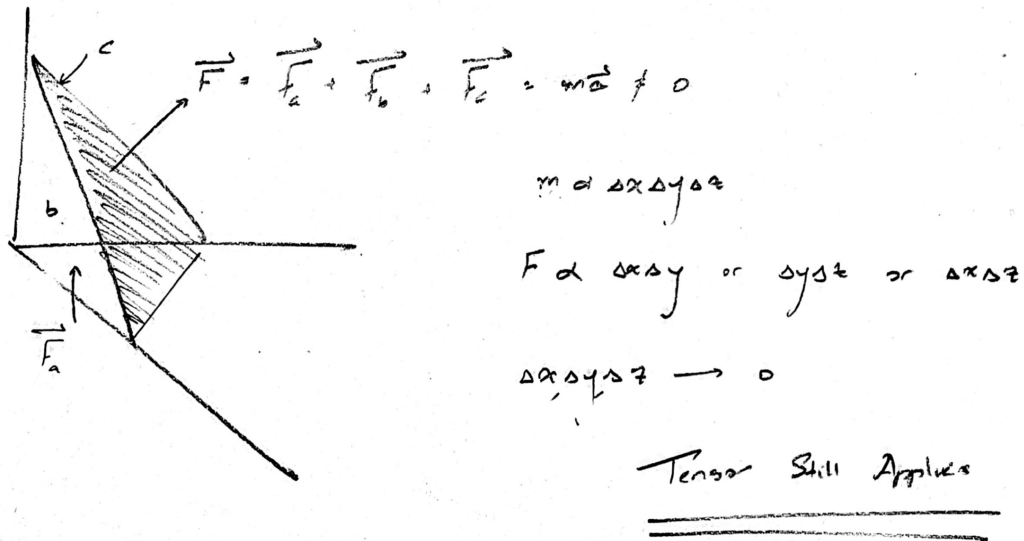 c
F⃗ = F⃗a + F⃗b + F⃗c = ma⃗ ≠ 0
m α ΔxΔyΔz
b
F α ΔxΔy or ΔyΔz or ΔxΔz
F⃗a
ΔxΔyΔz → 0
Tensor Still Applies